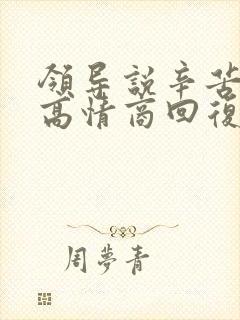 領导説辛苦
高情商回復
周夢青